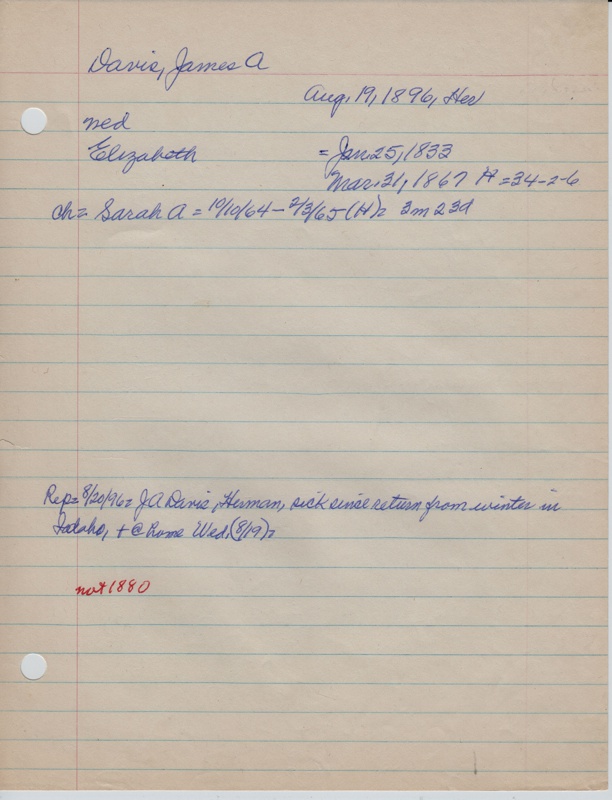 Davis, James A
Aug, 19, 1896, Her
med
Elizabeth = Jan. 25, 1833
Mar. 31, 1867 H = 34-2-6
ch = Sarah A = 10/10/64 - 2/3/65 (H) = 3m 23d
Rep = 8/20/96 = J A Davis, Herman, sick since return from winter in
Idaho, + @ home Wed, (8/19) =
not 1880